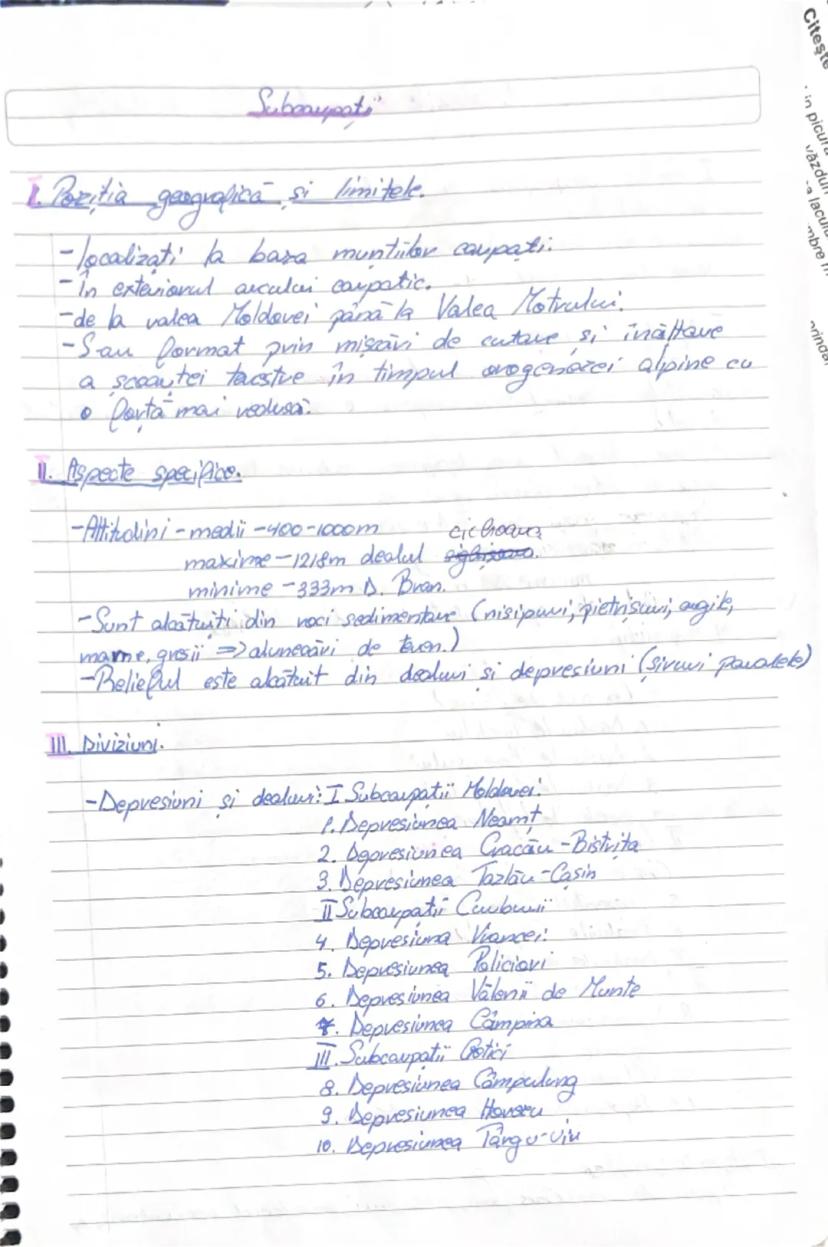 Subcarpații
I. Poziția geografică și limitele.
- localizați la baza munțiilor carpați.
- În exteriorul arcului carpatic.
- de la valea Moldovei până la Valea Motrului.
- S-au format prin mișcări de cutare și înălțare
a scoarței terestre în timpul orogenezei alpine cu
o forță mai redusă.
II. Aspecte specifice.
- Altitudini - medii - 400-1000m
cicloava
maxime - 1218m dealul
minime - 333m D. Bran.
- Sunt alcătuiți din roci sedimentare (nisipuri, pietrișuri, argile,
marne, gresii => alunecări de teren.)
- Relieful este alcătuit din dealuri și depresiuni (șiruri paralele)
III. Diviziuni.
- Depresiuni și dealuri: I Subcarpații Moldovei:
1. Depresiunea Neamț
2. Depresiunea Cracău - Bistrița
3. Depresiunea Tazlău - Cașin
II Subcarpații Curburii
4. Depresiuna Vrancei:
5. Depresiunea Policiori
6. Depresiunea Vălenii de Munte
7. Depresiunea Câmpina
III. Subcarpații Getici
8. Depresiunea Câmpulung
9. Depresiunea Horezu
10. Depresiunea Târgu-Jiu
Citește
în picur
văzduh
-a lacului
mbre